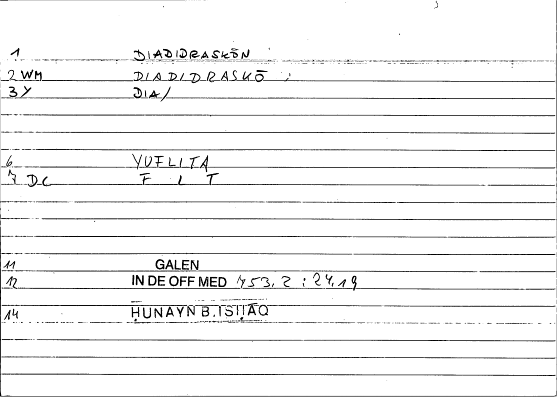 1 DIADIDRASKŌN
2 WM DIADIDRASKŌ
3 Y DIA/
6 YUFLITA
7 DC F L T
11 GALEN
12 IN DE OFF MED 453.2 : 24.19
14 ḤUNAYN B. ISḤĀQ